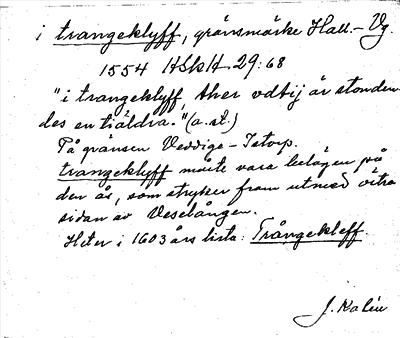 i trangeklyff, gränsmärke Hall.-Vg.
1554 HSkH 29:68
"i trangeklyff, ther vdtij är stonden
des en tiäldra."(a.st.)
På gränsen Veddige-Istorp.
trangeklyff måste vara belägen på
den ås, som stryker fram utmed östra
sidan av Veselången.
Heter i 1603 års lista: Trångekleff.
J. Kalén